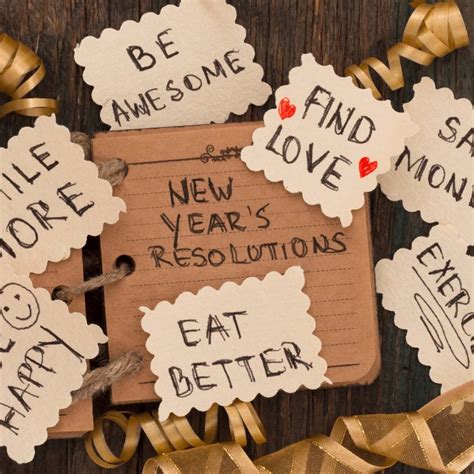 BE
AWESOME
FIND
LOVE
SA
MONE
ILE
MORE
NEW
YEAR'S
RESOLUTIONS
EXERC
EAT
BETTER
E
HAPPY